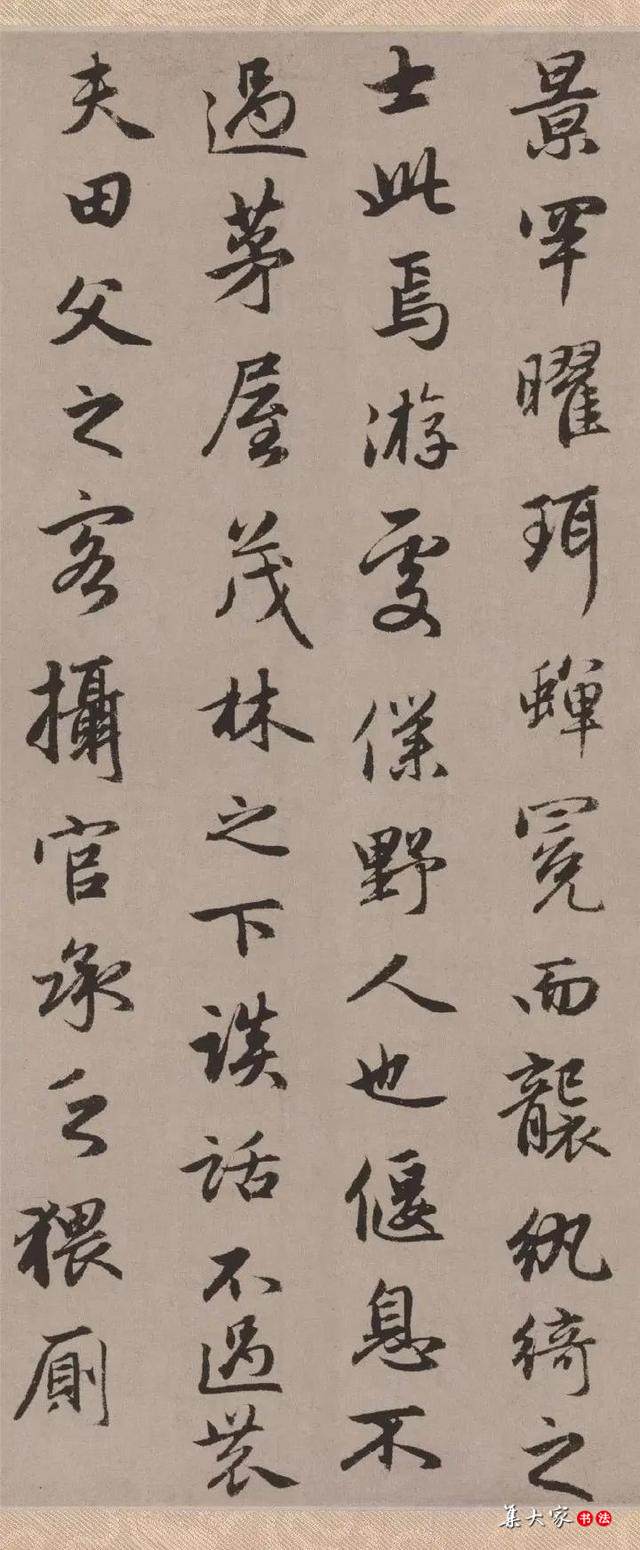 景罕曜珥蟬冕而襲紈綺之
士此焉游處僕野人也偃息不
過茅屋茂林之下談話不過農
夫田父之客攝官承乏猥廁
集大家书法